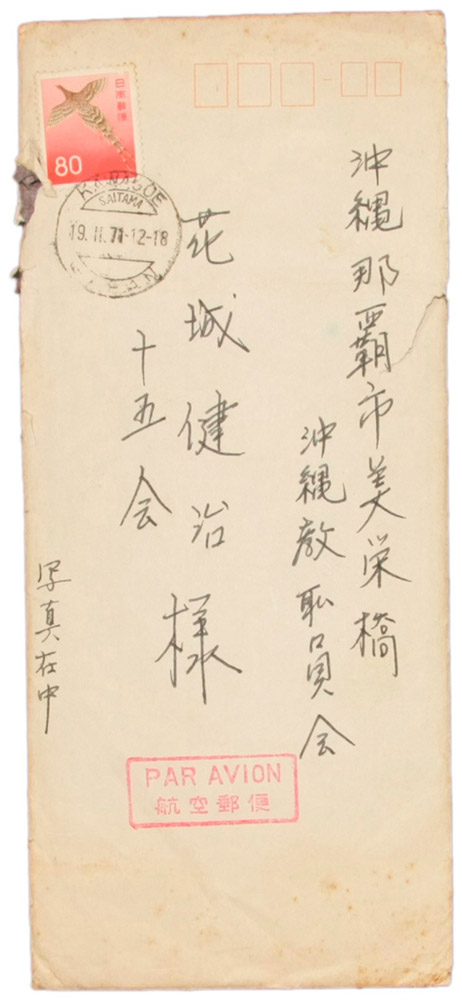 沖縄那覇市美栄橋
沖縄教职員会
花城健治様
十五会
写真在中
日本郵便
80
KAWAGOE
SAITAMA
19.II.71-12-18
JAPAN
PAR AVION
航空郵便